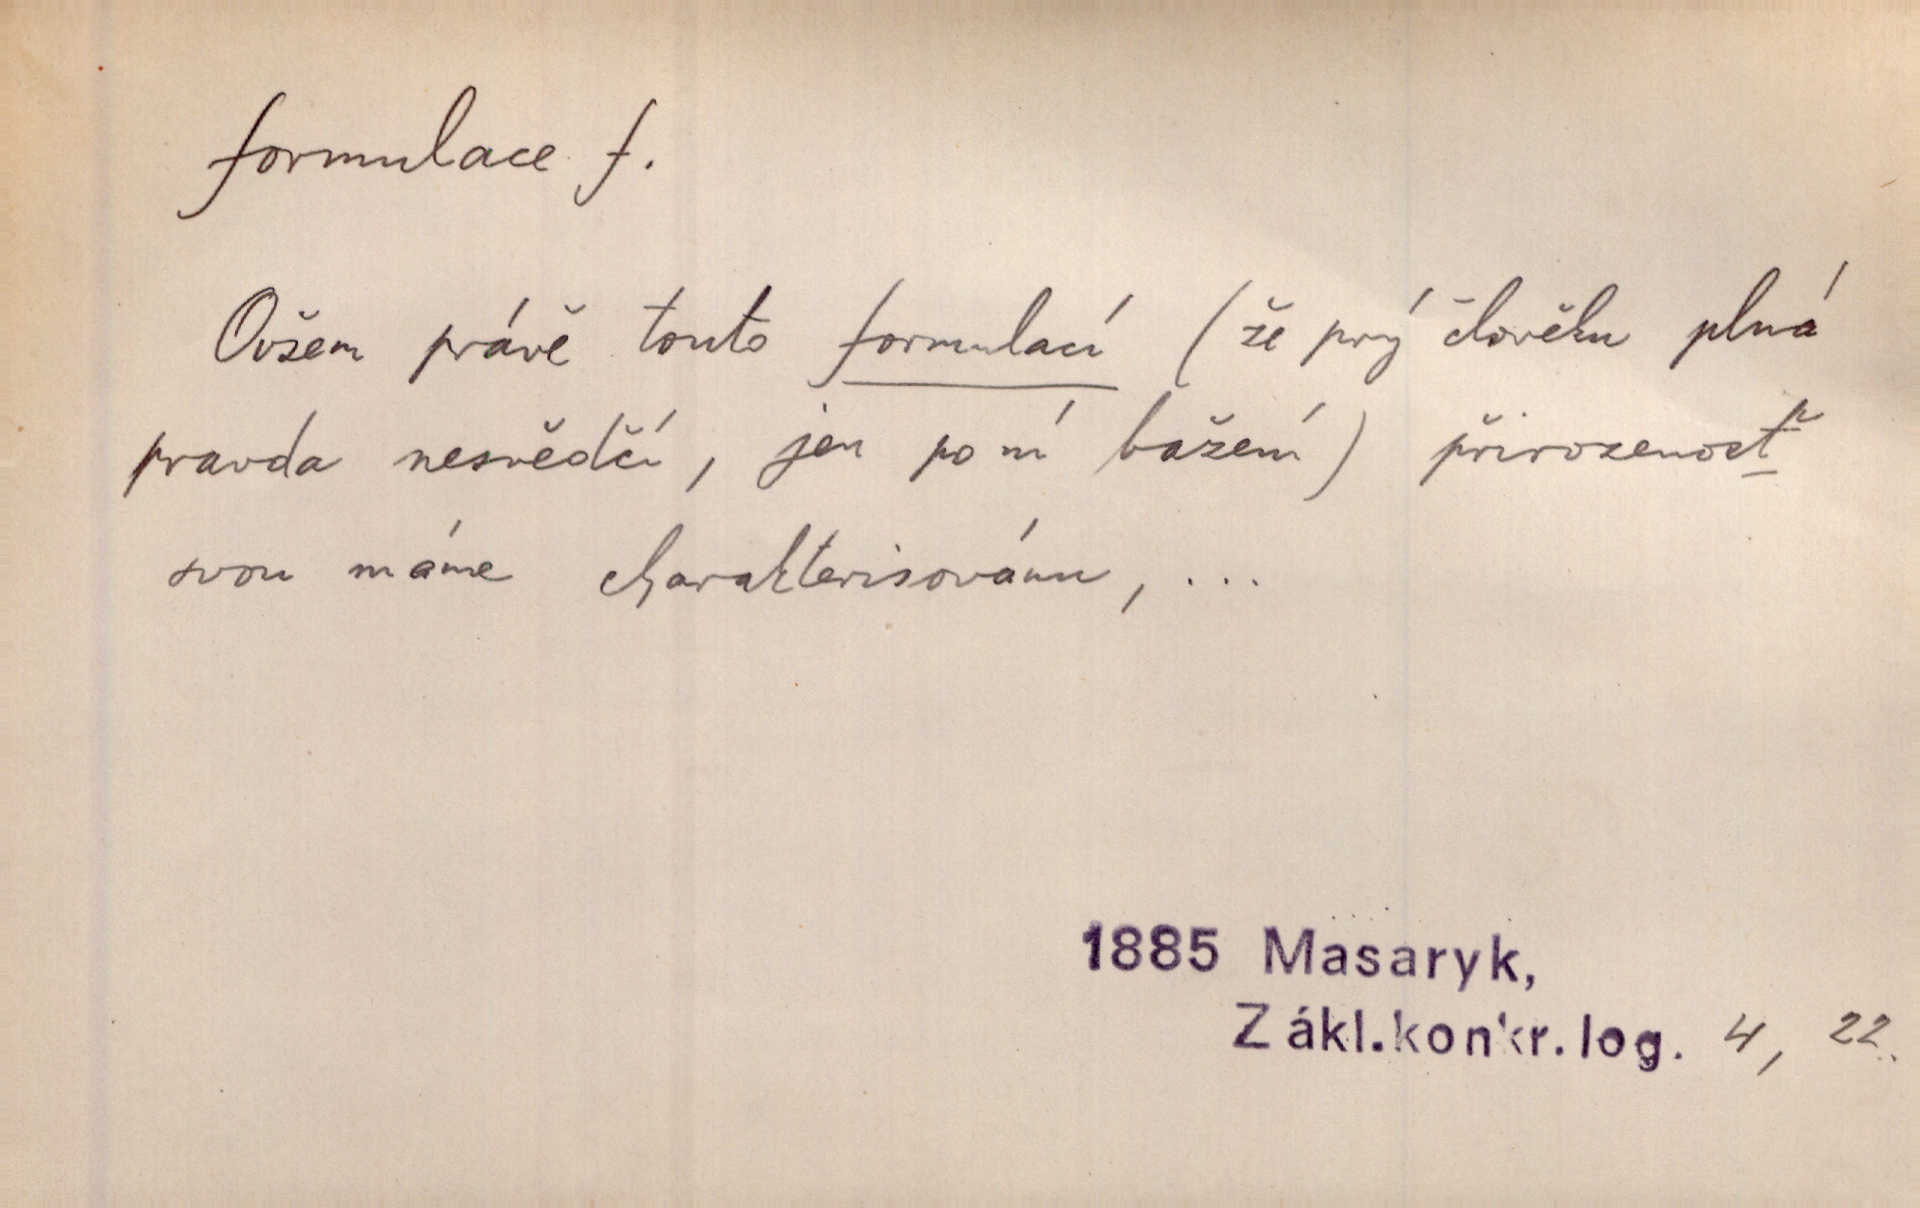 formulace f.
Ovšem právě touto formulací (že prý člověku plná
pravda nesvědčí, jen po ní bažení) přirozenosť
svou máme charakterisovánu, ...
1885 Masaryk,
Zákl.konkr.log. 4, 22.